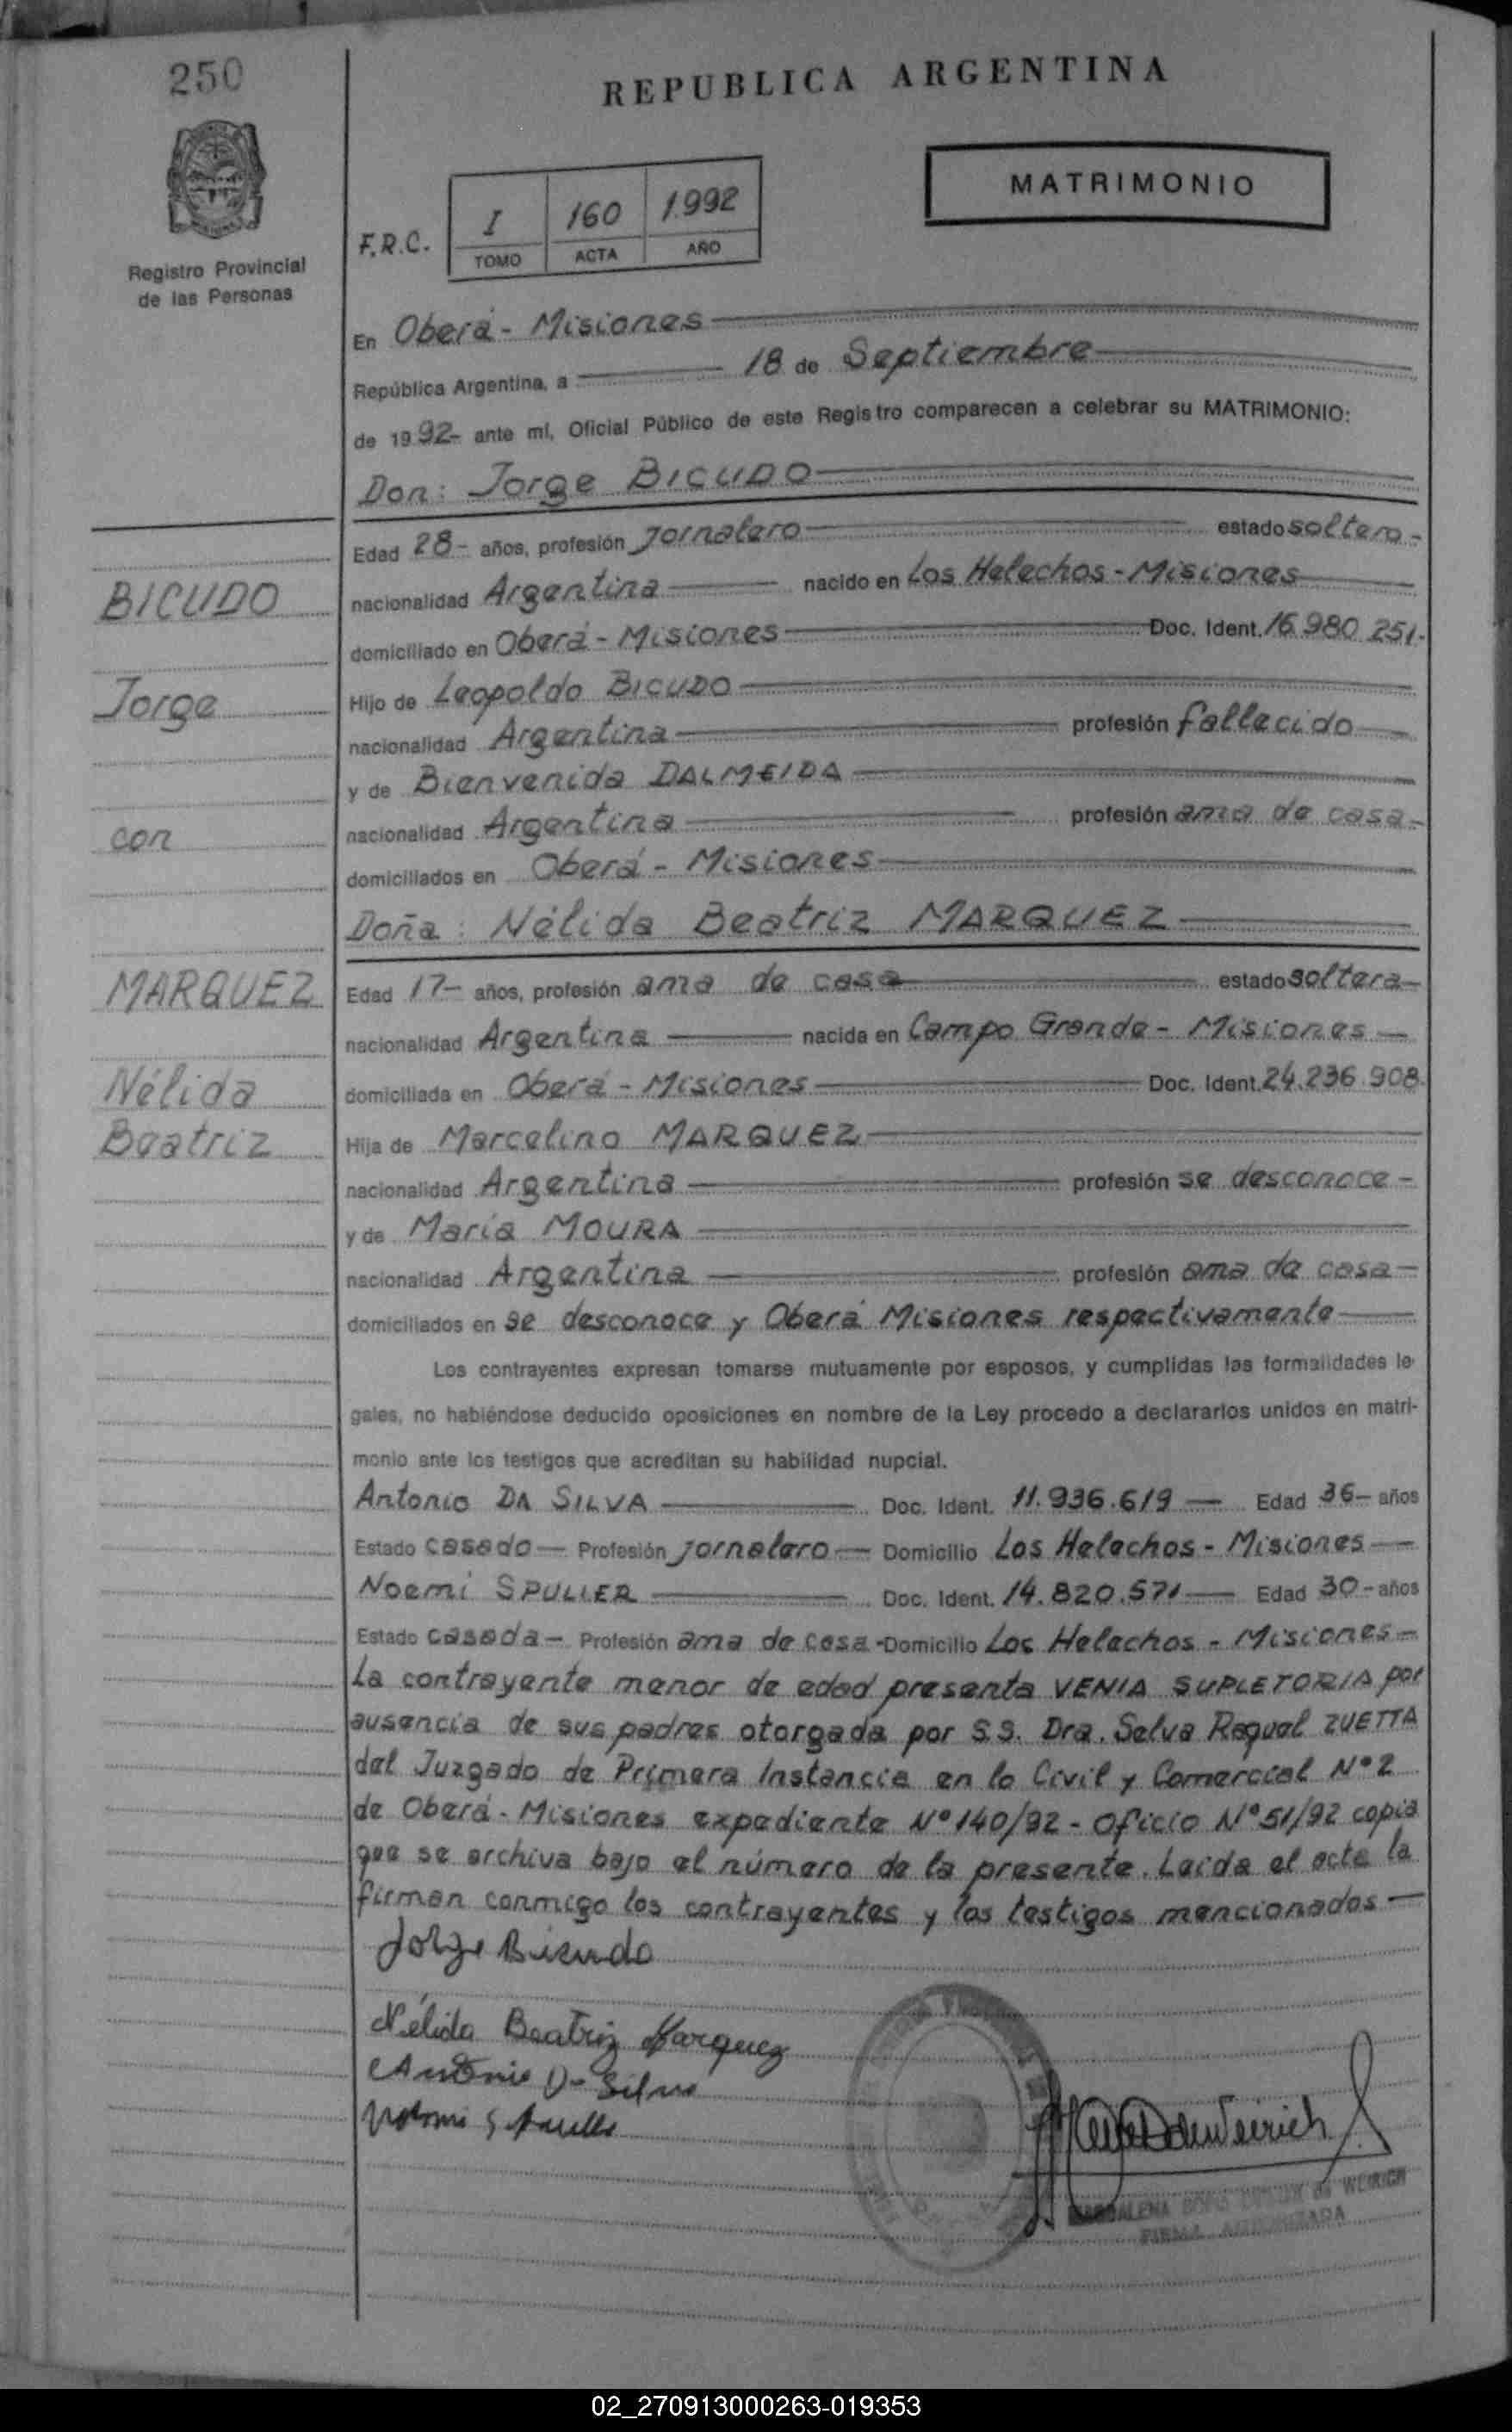 250
REPUBLICA ARGENTINA
MATRIMONIO
F.R.C.
I 160 1.992
TOMO ACTA AÑO
Registro Provincial
de las Personas
En Oberá - Misiones
República Argentina, a 18 de Septiembre
de 1992- ante mí, Oficial Público de este Registro comparecen a celebrar su MATRIMONIO:
Don: Jorge BICUDO
Edad 28- años, profesión Jornalero estado soltero-
BICUDO
nacionalidad Argentina nacido en Los Helechos - Misiones
domiciliado en Oberá - Misiones Doc. Ident. 16.980.251.
Jorge
Hijo de Leopoldo BICUDO
nacionalidad Argentina profesión fallecido
y de Bienvenida DALMEIDA
con
nacionalidad Argentina profesión ama de casa-
domiciliados en Oberá - Misiones
Doña: Nélida Beatriz MARQUEZ
MARQUEZ
Edad 17- años, profesión ama de casa estado soltera-
nacionalidad Argentina nacida en Campo Grande - Misiones
Nélida
domiciliada en Oberá - Misiones Doc. Ident. 24.236.908.
Beatriz
Hija de Marcelino MARQUEZ
nacionalidad Argentina profesión se desconoce-
y de María MOURA
nacionalidad Argentina profesión ama de casa-
domiciliados en se desconoce y Oberá Misiones respectivamente
Los contrayentes expresan tomarse mutuamente por esposos, y cumplidas las formalidades le-
gales, no habiéndose deducido oposiciones en nombre de la Ley procedo a declararlos unidos en matri-
monio ante los testigos que acreditan su habilidad nupcial.
Antonio DA SILVA Doc. Ident. 11.936.619 Edad 36- años
Estado casado Profesión Jornalero Domicilio Los Helechos - Misiones
Noemi SPULLER Doc. Ident. 14.820.571 Edad 30- años
Estado casada- Profesión ama de casa - Domicilio Los Helechos - Misiones-
La contrayente menor de edad presenta VENIA SUPLETORIA por
ausencia de sus padres otorgada por S.S. Dra. Selva Raquel ZUETTA
del Juzgado de Primera Instancia en lo Civil y Comercial Nº 2
de Oberá - Misiones expediente Nº 140/92 - Oficio Nº 51/92 copia
que se archiva bajo el número de la presente. Leída el acta la
firman conmigo los contrayentes y los testigos mencionados-
Jorge Bicudo
Nélida Beatriz Marquez
Antonio Da Silva
MAGDALENA WEIRICH
FIRMA AUTORIZADA
02_270913000263-019353